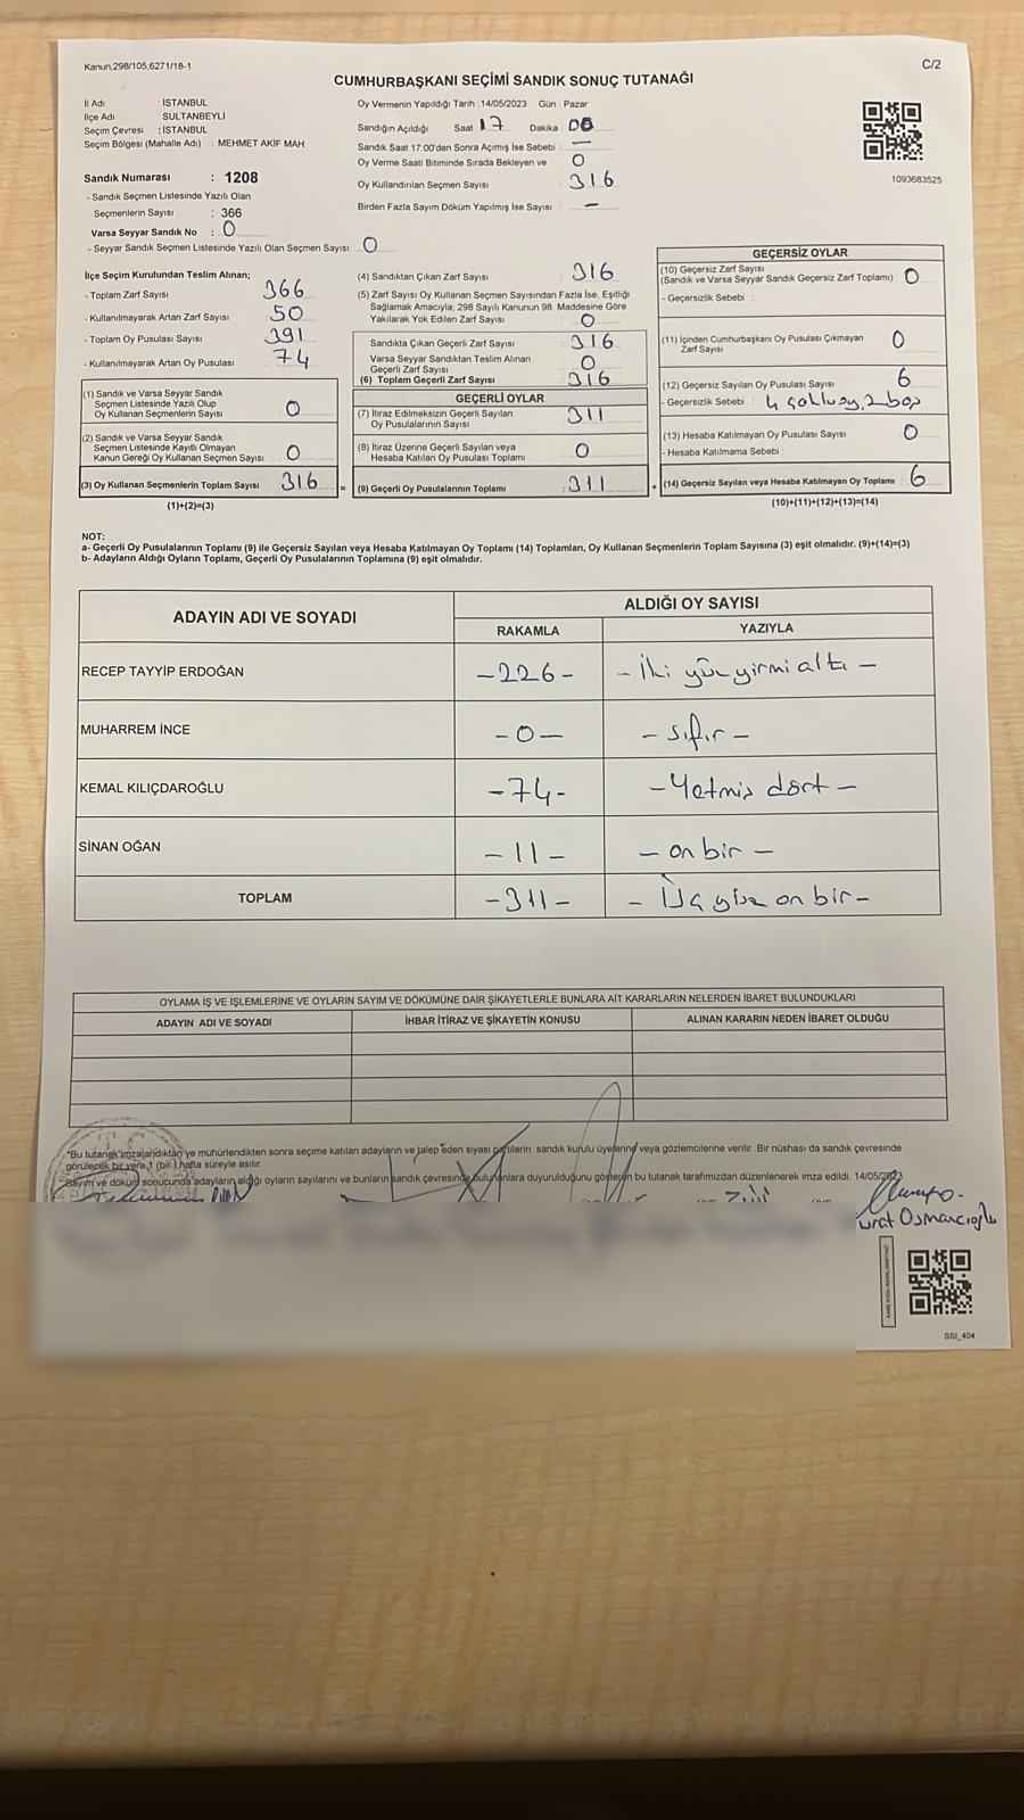 Kanun.298/105,6271/18-1
C/2
CUMHURBAŞKANI SEÇİMİ SANDIK SONUÇ TUTANAĞI
İl Adı : İSTANBUL
İlçe Adı : SULTANBEYLİ
Seçim Çevresi : İSTANBUL
Seçim Bölgesi (Mahalle Adı) : MEHMET AKİF MAH
Sandık Numarası : 1208
- Sandık Seçmen Listesinde Yazılı Olan
Seçmenlerin Sayısı : 366
Varsa Seyyar Sandık No : 0
- Seyyar Sandık Seçmen Listesinde Yazılı Olan Seçmen Sayısı 0
Oy Vermenin Yapıldığı Tarih : 14/05/2023 Gün : Pazar
Sandığın Açıldığı Saat 17 Dakika 00
Sandık Saat 17:00'den Sonra Açımış İse Sebebi —
Oy Verme Saati Bitiminde Sırada Bekleyen ve 0
Oy Kullandırılan Seçmen Sayısı 316
Birden Fazla Sayım Döküm Yapılmış İse Sayısı –
1093683525
İlçe Seçim Kurulundan Teslim Alınan;
- Toplam Zarf Sayısı 366
- Kullanılmayarak Artan Zarf Sayısı 50
- Toplam Oy Pusulası Sayısı 391
- Kullanılmayarak Artan Oy Pusulası 74
(1) Sandık ve Varsa Seyyar Sandık
Seçmen Listesinde Yazılı Olup
Oy Kullanan Seçmenlerin Sayısı 0
(2) Sandık ve Varsa Seyyar Sandık
Seçmen Listesinde Kayıtlı Olmayan
Kanun Gereği Oy Kullanan Seçmen Sayısı 0
(3) Oy Kullanan Seçmenlerin Toplam Sayısı 316
(1)+(2)=(3)
(4) Sandıktan Çıkan Zarf Sayısı 316
(5) Zarf Sayısı Oy Kullanan Seçmen Sayısından Fazla İse, Eşitliği
Sağlamak Amacıyla, 298 Sayılı Kanunun 98. Maddesine Göre
Yakılarak Yok Edilen Zarf Sayısı 0
Sandıkta Çıkan Geçerli Zarf Sayısı 316
Varsa Seyyar Sandıktan Teslim Alınan
Geçerli Zarf Sayısı 0
(6) Toplam Geçerli Zarf Sayısı 316
GEÇERLİ OYLAR
(7) İtiraz Edilmeksizin Geçerli Sayılan
Oy Pusulalarının Sayısı 311
(8) İtiraz Üzerine Geçerli Sayılan veya
Hesaba Katılan Oy Pusulası Toplamı 0
= (9) Geçerli Oy Pusulalarının Toplamı 311
GEÇERSİZ OYLAR
(10) Geçersiz Zarf Sayısı
(Sandık ve Varsa Seyyar Sandık Geçersiz Zarf Toplamı) 0
- Geçersizlik Sebebi
(11) İçinden Cumhurbaşkanı Oy Pusulası Çıkmayan
Zarf Sayısı 0
(12) Geçersiz Sayılan Oy Pusulası Sayısı 6
- Geçersizlik Sebebi 4 çoklu oy, 2 boş
(13) Hesaba Katılmayan Oy Pusulası Sayısı 0
- Hesaba Katılmama Sebebi
+ (14) Geçersiz Sayılan veya Hesaba Katılmayan Oy Toplamı 6
(10)+(11)+(12)+(13)=(14)
NOT:
a- Geçerli Oy Pusulalarının Toplamı (9) ile Geçersiz Sayılan veya Hesaba Katılmayan Oy Toplamı (14) Toplamları, Oy Kullanan Seçmenlerin Toplam Sayısına (3) eşit olmalıdır. (9)+(14)=(3)
b- Adayların Aldığı Oyların Toplamı, Geçerli Oy Pusulalarının Toplamına (9) eşit olmalıdır.
ADAYIN ADI VE SOYADI ALDIĞI OY SAYISI
RAKAMLA YAZIYLA
RECEP TAYYİP ERDOĞAN -226- - İki yüz yirmi altı -
MUHARREM İNCE -0- - sıfır -
KEMAL KILIÇDAROĞLU -74- - Yetmiş dört -
SİNAN OĞAN -11- - on bir -
TOPLAM -311- - Üç yüz on bir -
OYLAMA İŞ VE İŞLEMLERİNE VE OYLARIN SAYIM VE DÖKÜMÜNE DAİR ŞİKAYETLERLE BUNLARA AİT KARARLARIN NELERDEN İBARET BULUNDUKLARI
ADAYIN ADI VE SOYADI İHBAR İTİRAZ VE ŞİKAYETİN KONUSU ALINAN KARARIN NEDEN İBARET OLDUĞU
*Bu tutanak imzalandıktan ve mühürlendikten sonra seçime katılan adayların ve talep eden siyasi partilerin sandık kurulu üyelerine veya gözlemcilerine verilir. Bir nüshası da sandık çevresinde
görülecek bir yere 1 (bir) hafta süreyle asılır.
Sayım ve döküm sonucunda adayların aldığı oyların sayılarını ve bunların sandık çevresinde bulunanlara duyurulduğunu gösteren bu tutanak tarafımızdan düzenlenerek imza edildi. 14/05/2023
Osmancıoğlu
SSI_404